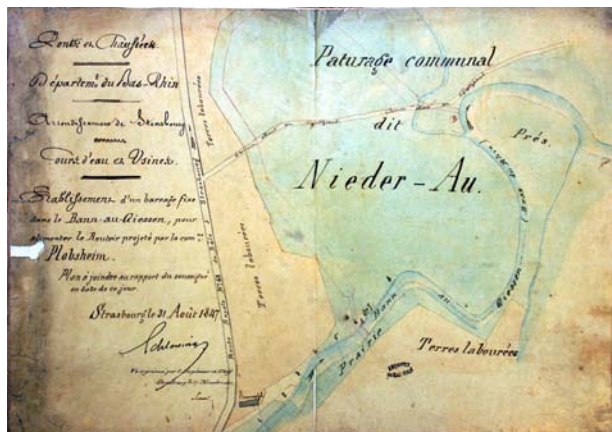 Ponts et Chaussées.
Départem.t du Bas-Rhin
Arrondissement de Strasbourg
Cours d'eau et Usines.
Etablissement d'un barrage fixe
dans le Bann-au-Giessen, pour
alimenter le Rouissoir projeté par la com.ne
Plobsheim.
Plan à joindre au rapport du soussigné
en date de ce jour.
Strasbourg le 31 Août 1847
Paturage communal
dit
Nieder-Au.
Prés.
Terres labourées
Terres labourées
Terres labourées
Prairie
Bann au Giessen
Route Royale N.° 68 de Bâle à Strasbourg